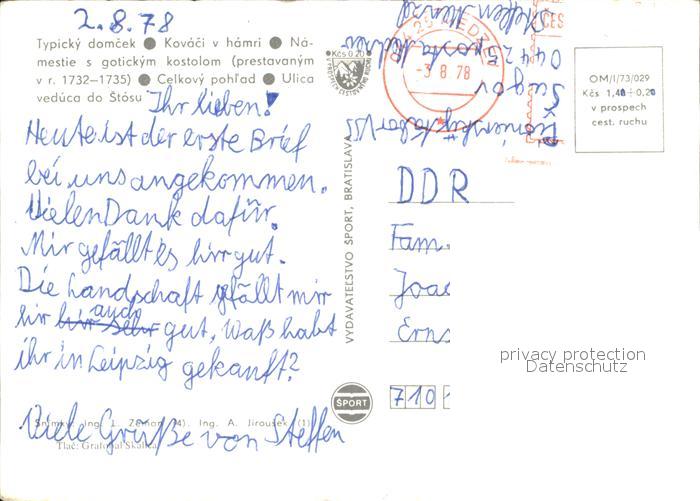 2.8.78
Typický domček ● Kováči v hámri ● Ná-
mestie s gotickým kostolom (prestavaným
v r. 1732—1735) ● Celkový pohľad ● Ulica
vedúca do Štósu
Ihr lieben!
Heute ist der erste Brief
bei uns angekommen.
Vielen Dank dafür.
Mir gefällt es hir gut.
Die Landschaft gefällt mir
hir auch gut, Waß habt
ihr in Leipzig gekauft?
Viele Grüße von Steffen
Snímky: Ing. L. Zeman (4), Ing. A. Jiroušek (1)
Tlač: Grafobal Skalica
Kčs 0,20
VYDAVATEĽSTVO ŠPORT, BRATISLAVA
ŠPORT
Pionierský tábor VSS
Šugov
044 25
Steffen
-3 8 78
OM/I/73/029
Kčs 1,40+0,20
v prospech
cest. ruchu
DDR
Fam.
Joac
Erns
710
privacy protection
Datenschutz